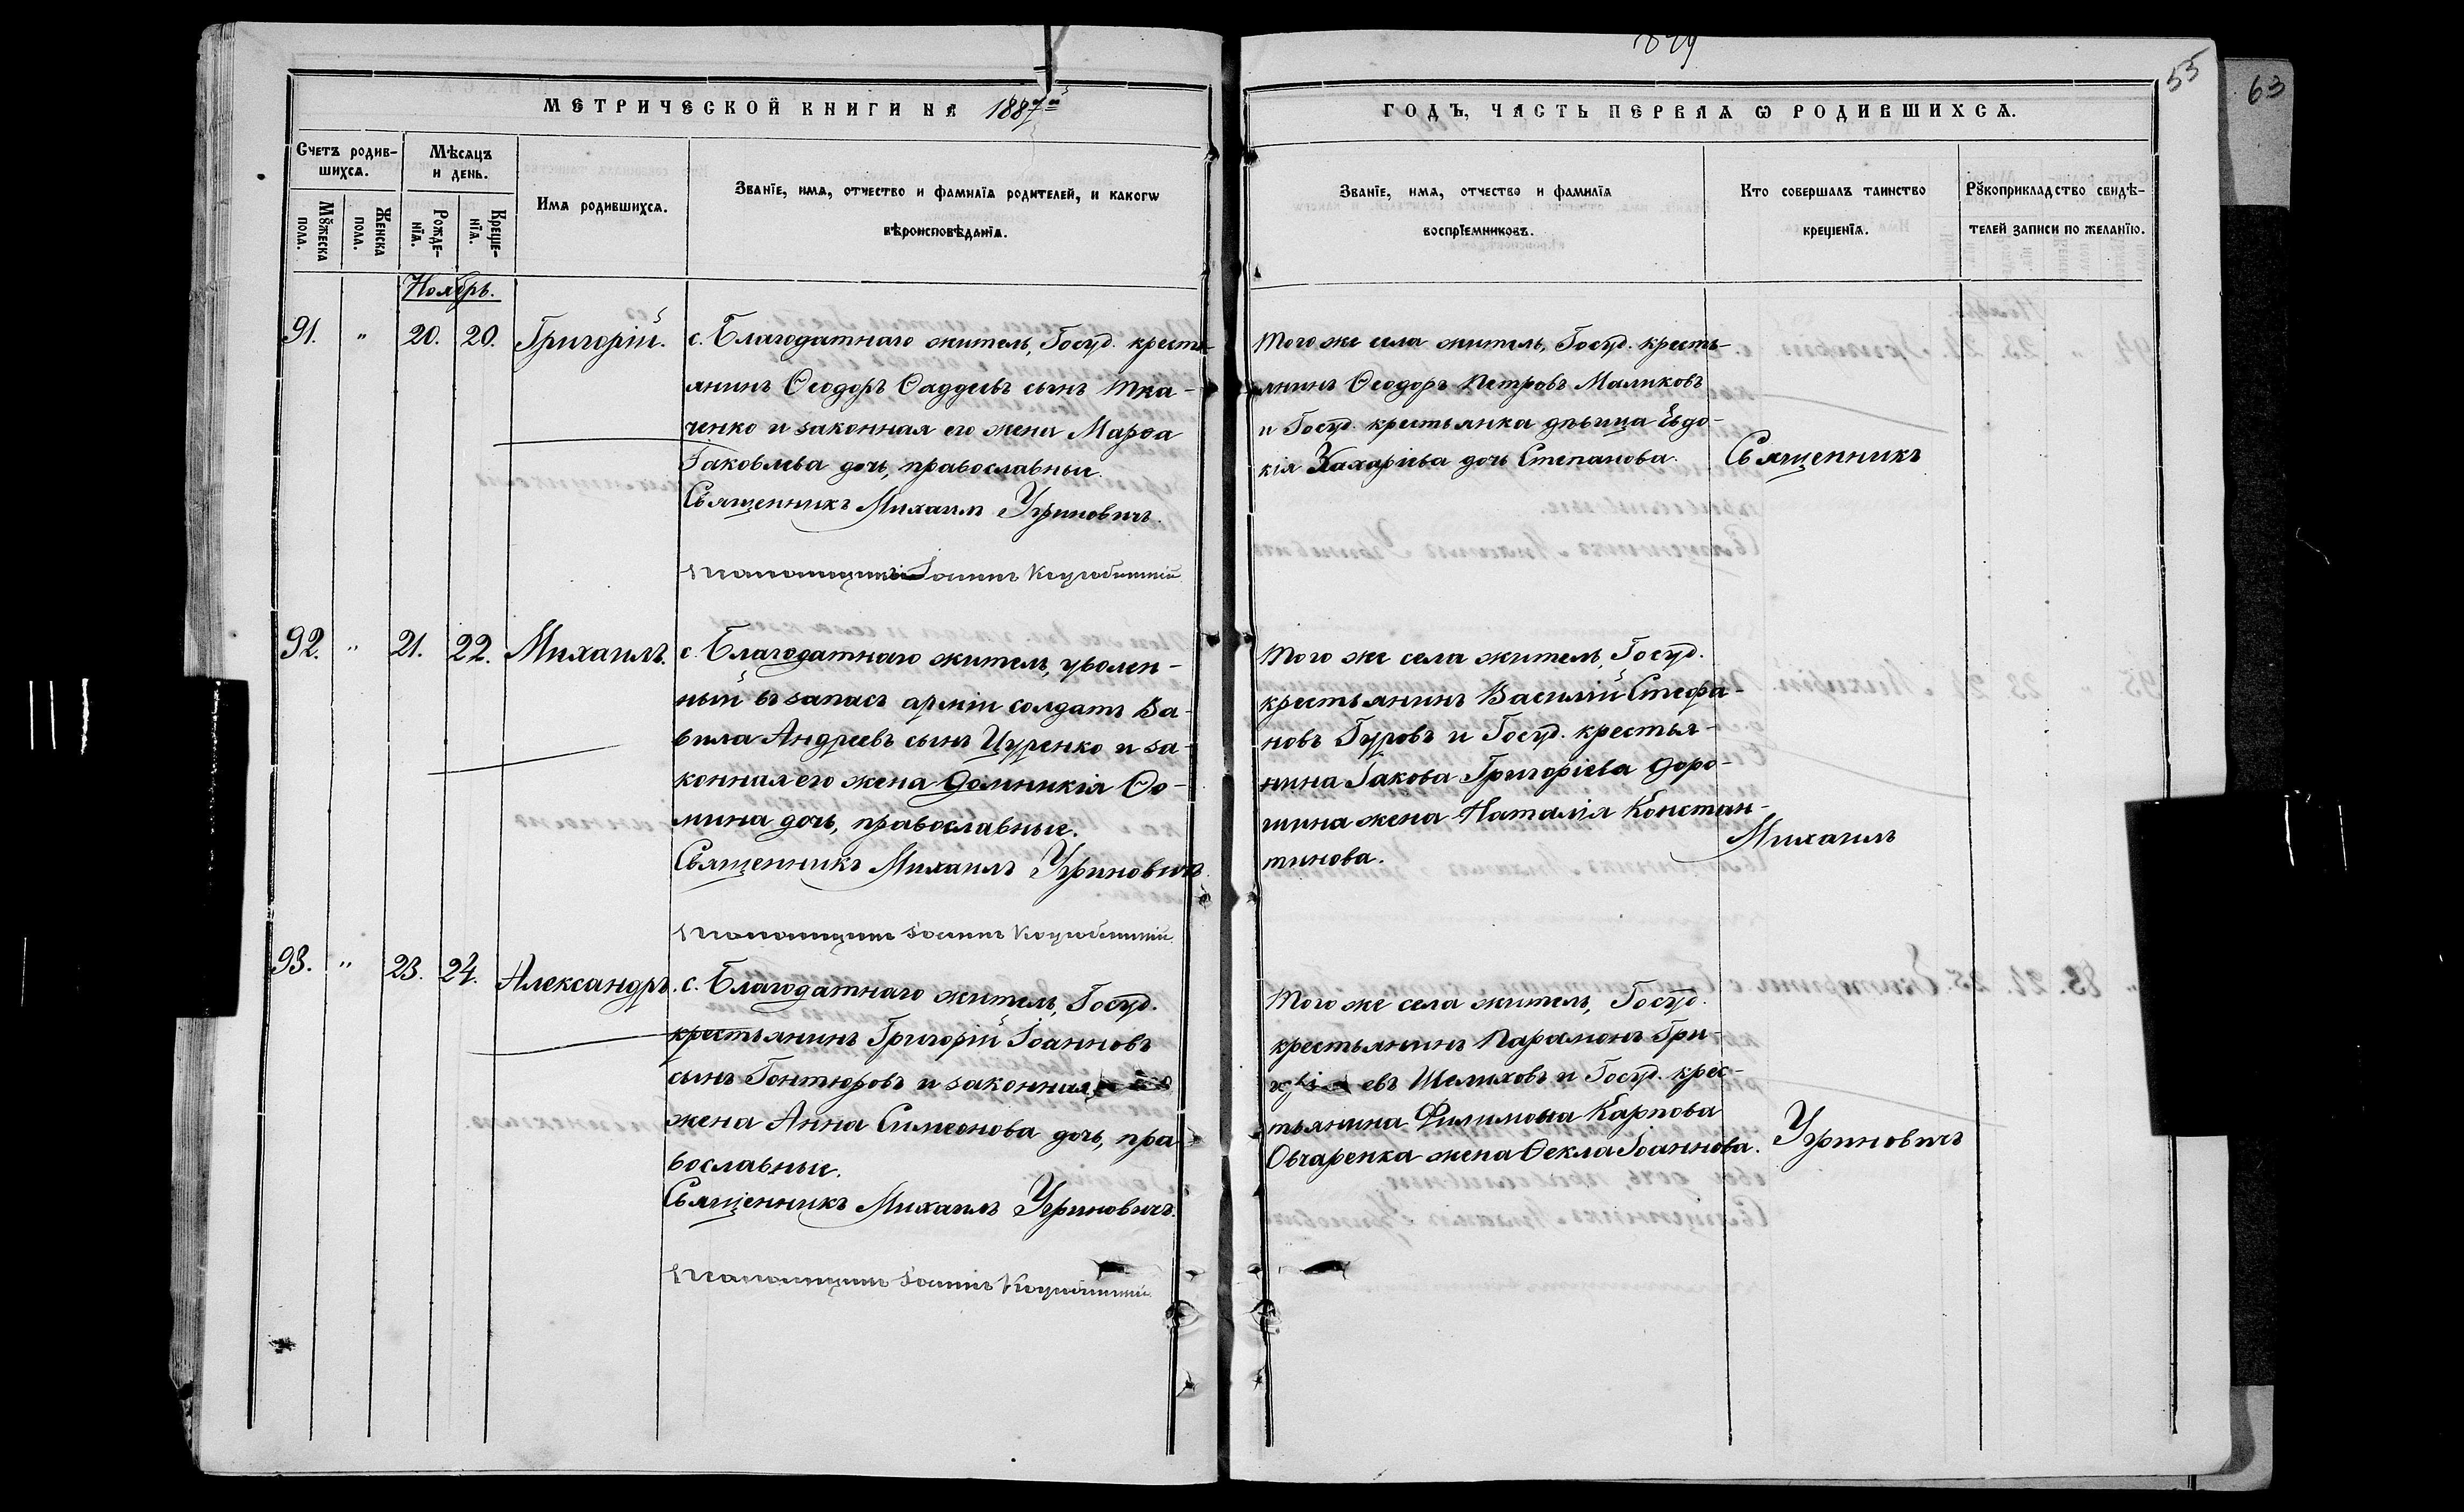 829
55
63
МЕТРИЧЕСКОЙ КНИГИ НА 1887й
ГОДЪ, ЧАСТЬ ПЕРВАѦ Ѡ РОДИВШИХСѦ.
Счетъ родив-
шихсѧ.
Мѣсѧцъ
и день.
Имѧ родившихсѧ.
Званїе, имѧ, отчество и фамилїѧ родителей, и какогѡ
вѣроисповѣданїѧ.
Мꙋжеска
пола.
Женска
пола.
Рожде-
нїѧ.
Креще-
нїѧ.
Званїе, имѧ, отчество и фамилїѧ
воспрїемниковъ.
Кто совершалъ таинство
крещенїѧ.
Рꙋкоприкладство свидѣ-
телей записи по желанїю.
Ноябрь.
91. " 20. 20. Григорій.
с. Благодатнаго житель, Госуд. кресть-
янинъ Ѳеодоръ Ѳаддеевъ сынъ Тка-
ченко и законная его жена Марѳа
Іаковлева дочь, православные.
Священникъ Михаилъ Угриновичъ.
Псаломщикъ Іоаннъ
Того же села житель, Госуд. кресть-
янинъ Ѳеодоръ Петровъ Маликовъ
и Госуд. крестьянка дѣвица Евдо-
кія Захаріева дочь Степанова.
Священникъ
92. " 21. 22. Михаилъ.
с. Благодатнаго житель, уволен-
ный въ запасъ арміи солдатъ Ва-
вила Андреевъ сынъ Цуренко и за-
конная его жена Домникія Ѳо-
мина дочь, православные.
Священникъ Михаилъ Угриновичъ.
Псаломщикъ Іоаннъ
Того же села житель, Госуд.
крестьянинъ Василій Стефа-
новъ Гуровъ и Госуд. крестья-
нина Іакова Григоріева Доро-
шина жена Наталія Констан-
тинова.
Михаилъ
93. " 23. 24. Александръ.
с. Благодатнаго житель, Госуд.
крестьянинъ Григорій Іоанновъ
сынъ Гонтюровъ и законная его
жена Анна Симеонова дочь, пра-
вославные.
Священникъ Михаилъ Угриновичъ.
Псаломщикъ Іоаннъ
Того же села житель, Госуд.
крестьянинъ Парамонъ Гри-
евъ Шелиховъ и Госуд. крес-
тьянина Филимона Карпова
Овчаренка жена Ѳекла Іоаннова.
Угриновичъ